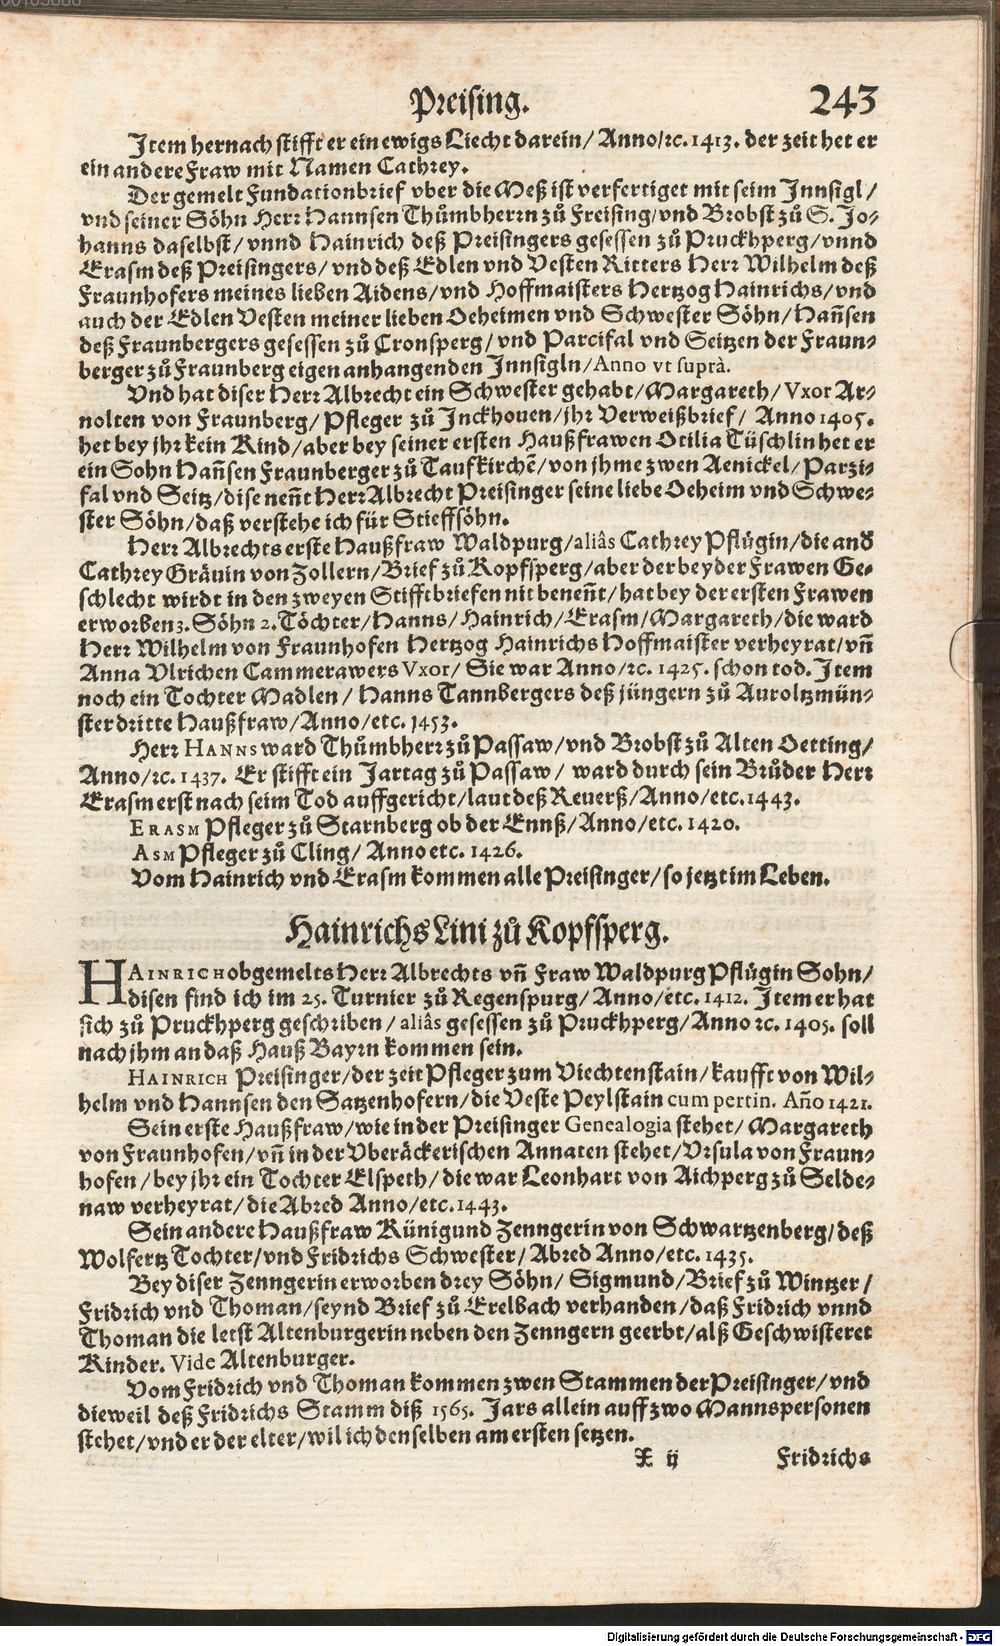 Preising. 243
Item hernach stifft er ein ewigs Liecht darein/ Anno/ꝛc. 1413. der zeit het er
ein andere Fraw mit Namen Cathrey.
Der gemelt Fundationbrief vber die Meß ist verfertiget mit seim Innsigl/
vnd seiner Söhn Herr Hannsen Thůmbherrn zů Freising/vnd Brobst zů S. Jo-
hanns daselbst/ vnnd Hainrich deß Preisingers gesessen zů Pruckhperg/vnnd
Erasm deß Preisingers/ vnd deß Edlen vnd Vesten Ritters Herr Wilhelm deß
Fraunhofers meines lieben Aidens/vnd Hoffmaisters Hertzog Hainrichs/vnd
auch der Edlen Vesten meiner lieben Oeheimen vnd Schwester Söhn/ Hañsen
deß Fraunbergers gesessen zů Cronsperg/ vnd Parcifal vnd Seitzen der Fraun-
berger zů Fraunberg eigen anhangenden Innsigln/Anno vt suprà.
Vnd hat diser Herr Albrecht ein Schwester gehabt/Margareth/ Vxor Ar-
nolten von Fraunberg/ Pfleger zů Inckhouen/jhr Verweißbrief/ Anno 1405.
het bey jhr kein Kind/aber bey seiner ersten Haußfrawen Otilia Tüschlin het er
ein Sohn Hañsen Fraunberger zů Taufkirchẽ/von jhme zwen Aenickel/Parzi-
fal vnd Seitz/dise neñt Herr Albrecht Preisinger seine liebe Oeheim vnd Schwe-
ster Söhn/daß verstehe ich für Stieffsöhn.
Herr Albrechts erste Haußfraw Waldpurg/aliâs Cathrey Pflügin/die and
Cathrey Grävin von Zollern/Brief zů Kopfsperg/aber der beyder Frawen Ge-
schlecht wirdt in den zweyen Stifftbriefen nit beneñt/hat bey der ersten Frawen
erworben 3. Söhn 2. Töchter/Hanns/Hainrich/Erasm/Margareth/die ward
Herr Wilhelm von Fraunhofen Hertzog Hainrichs Hoffmaister verheyrat/vñ
Anna Vlrichen Cammerawers Vxor/ Sie war Anno/ꝛc. 1425. schon tod. Item
noch ein Tochter Madlen/ Hanns Tannbergers deß jüngern zů Auroltzmün-
ster dritte Haußfraw/Anno/etc. 1453.
Herr HANNS ward Thůmbherr zů Passaw/vnd Brobst zů Alten Oetting/
Anno/ꝛc. 1437. Er stifft ein Jartag zů Passaw/ ward durch sein Brůder Herr
Erasm erst nach seim Tod auffgericht/laut deß Reuerß/Anno/etc. 1443.
ERASM Pfleger zů Starnberg ob der Ennß/Anno/etc. 1420.
ASM Pfleger zů Cling/ Anno etc. 1426.
Vom Hainrich vnd Erasm kommen alle Preisinger/so jetzt im Leben.
Hainrichs Lini zů Kopfsperg.
HAINRICH obgemelts Herr Albrechts vñ Fraw Waldpurg Pflügin Sohn/
disen find ich im 25. Turnier zů Regenspurg/Anno/etc. 1412. Item er hat
sich zů Pruckhperg geschriben/ aliâs gesessen zů Pruckhperg/Anno ꝛc. 1405. soll
nach jhm an daß Hauß Bayrn kommen sein.
HAINRICH Preisinger/der zeit Pfleger zum Viechtenstain/kaufft von Wil-
helm vnd Hannsen den Satzenhofern/die Veste Peylstain cum pertin. Año 1421.
Sein erste Haußfraw/wie in der Preisinger Genealogia stehet/ Margareth
von Fraunhofen/vñ in der Vberäckerischen Annaten stehet/Vrsula von Fraun-
hofen/bey jhr ein Tochter Elspeth/die war Leonhart von Aichperg zů Selde-
naw verheyrat/die Abred Anno/etc. 1443.
Sein andere Haußfraw Künigund Zenngerin von Schwartzenberg/deß
Wolfertz Tochter/vnd Fridrichs Schwester/ Abred Anno/etc. 1435.
Bey diser Zenngerin erworben drey Söhn/ Sigmund/Brief zů Wintzer/
Fridrich vnd Thoman/seynd Brief zů Erelbach verhanden/daß Fridrich vnnd
Thoman die letst Altenburgerin neben den Zenngern geerbt/alß Geschwisteret
Kinder. Vide Altenburger.
Vom Fridrich vnd Thoman kommen zwen Stammen der Preisinger/vnd
dieweil deß Fridrichs Stamm diß 1565. Jars allein auff zwo Mannspersonen
stehet/vnd er der elter/wil ich denselben am ersten setzen.
X ij Fridrichs
Digitalisierung gefördert durch die Deutsche Forschungsgemeinschaft - DFG